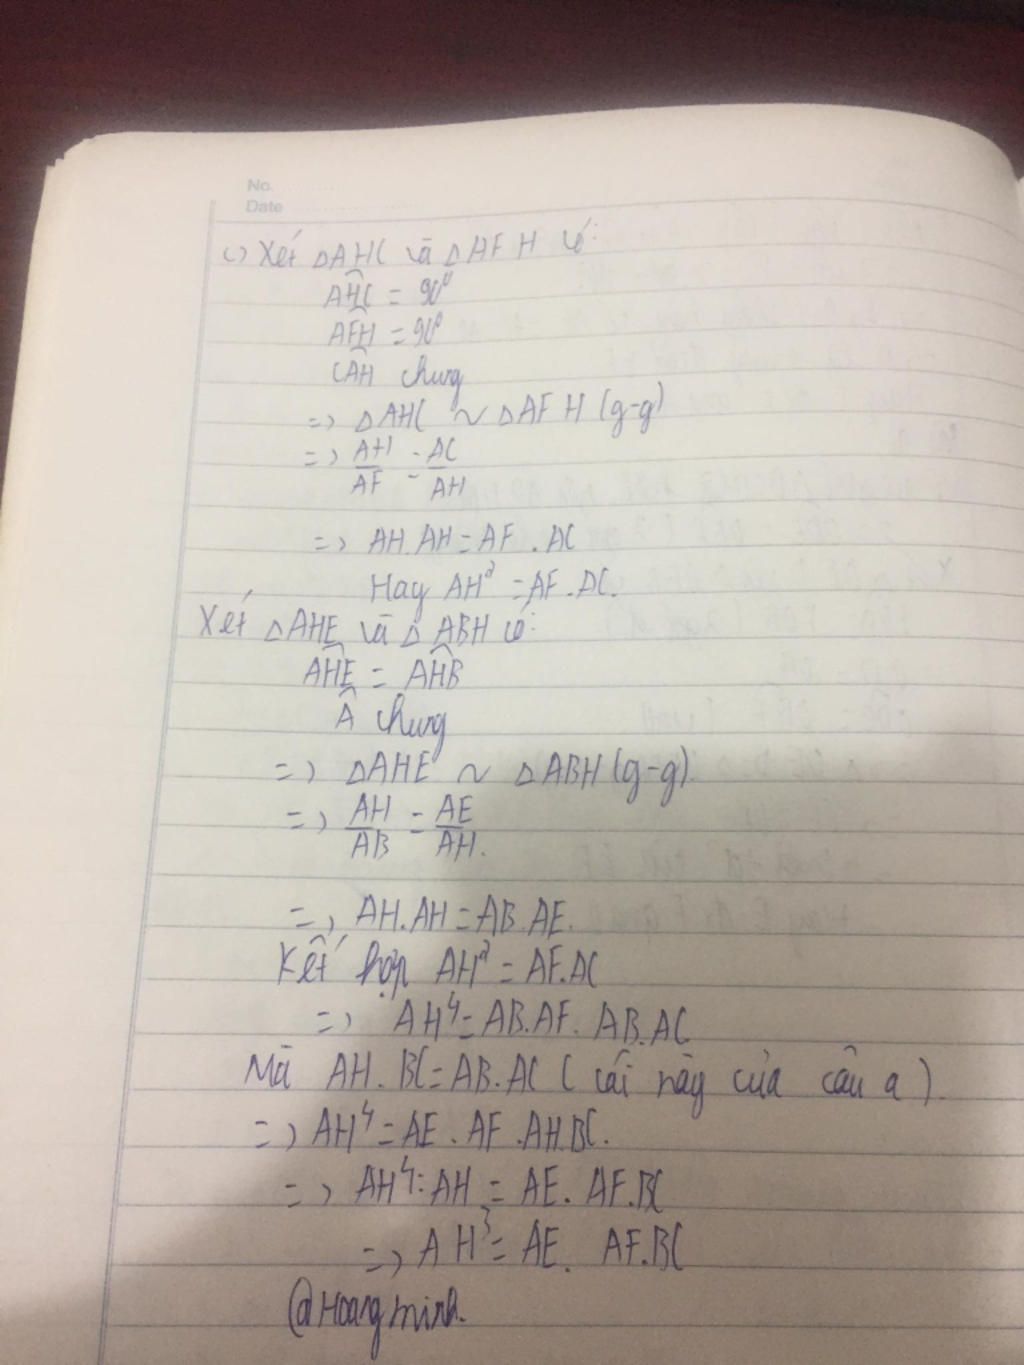 No.
Date
c) Xét △AHC và △AFH có:
AHC = 90⁰
AFH = 90⁰
CAH chung
=> △AHC ~ △AFH (g-g)
=> AH/AF = AC/AH
=> AH.AH = AF.AC
Hay AH² = AF.AC.
Xét △AHE và △ABH có:
AHE = AHB
A chung
=> △AHE ~ △ABH (g-g)
=> AH/AB = AE/AH.
=> AH.AH = AB.AE.
Kết hợp AH² = AF.AC
=> AH⁴ = AB.AF. AB.AC
Mà AH.BC = AB.AC (cái này của câu a).
=> AH⁴ = AE.AF.AH.BC.
=> AH⁴:AH = AE.AF.BC
=> AH³ = AE. AF.BC
@Hoangminh.